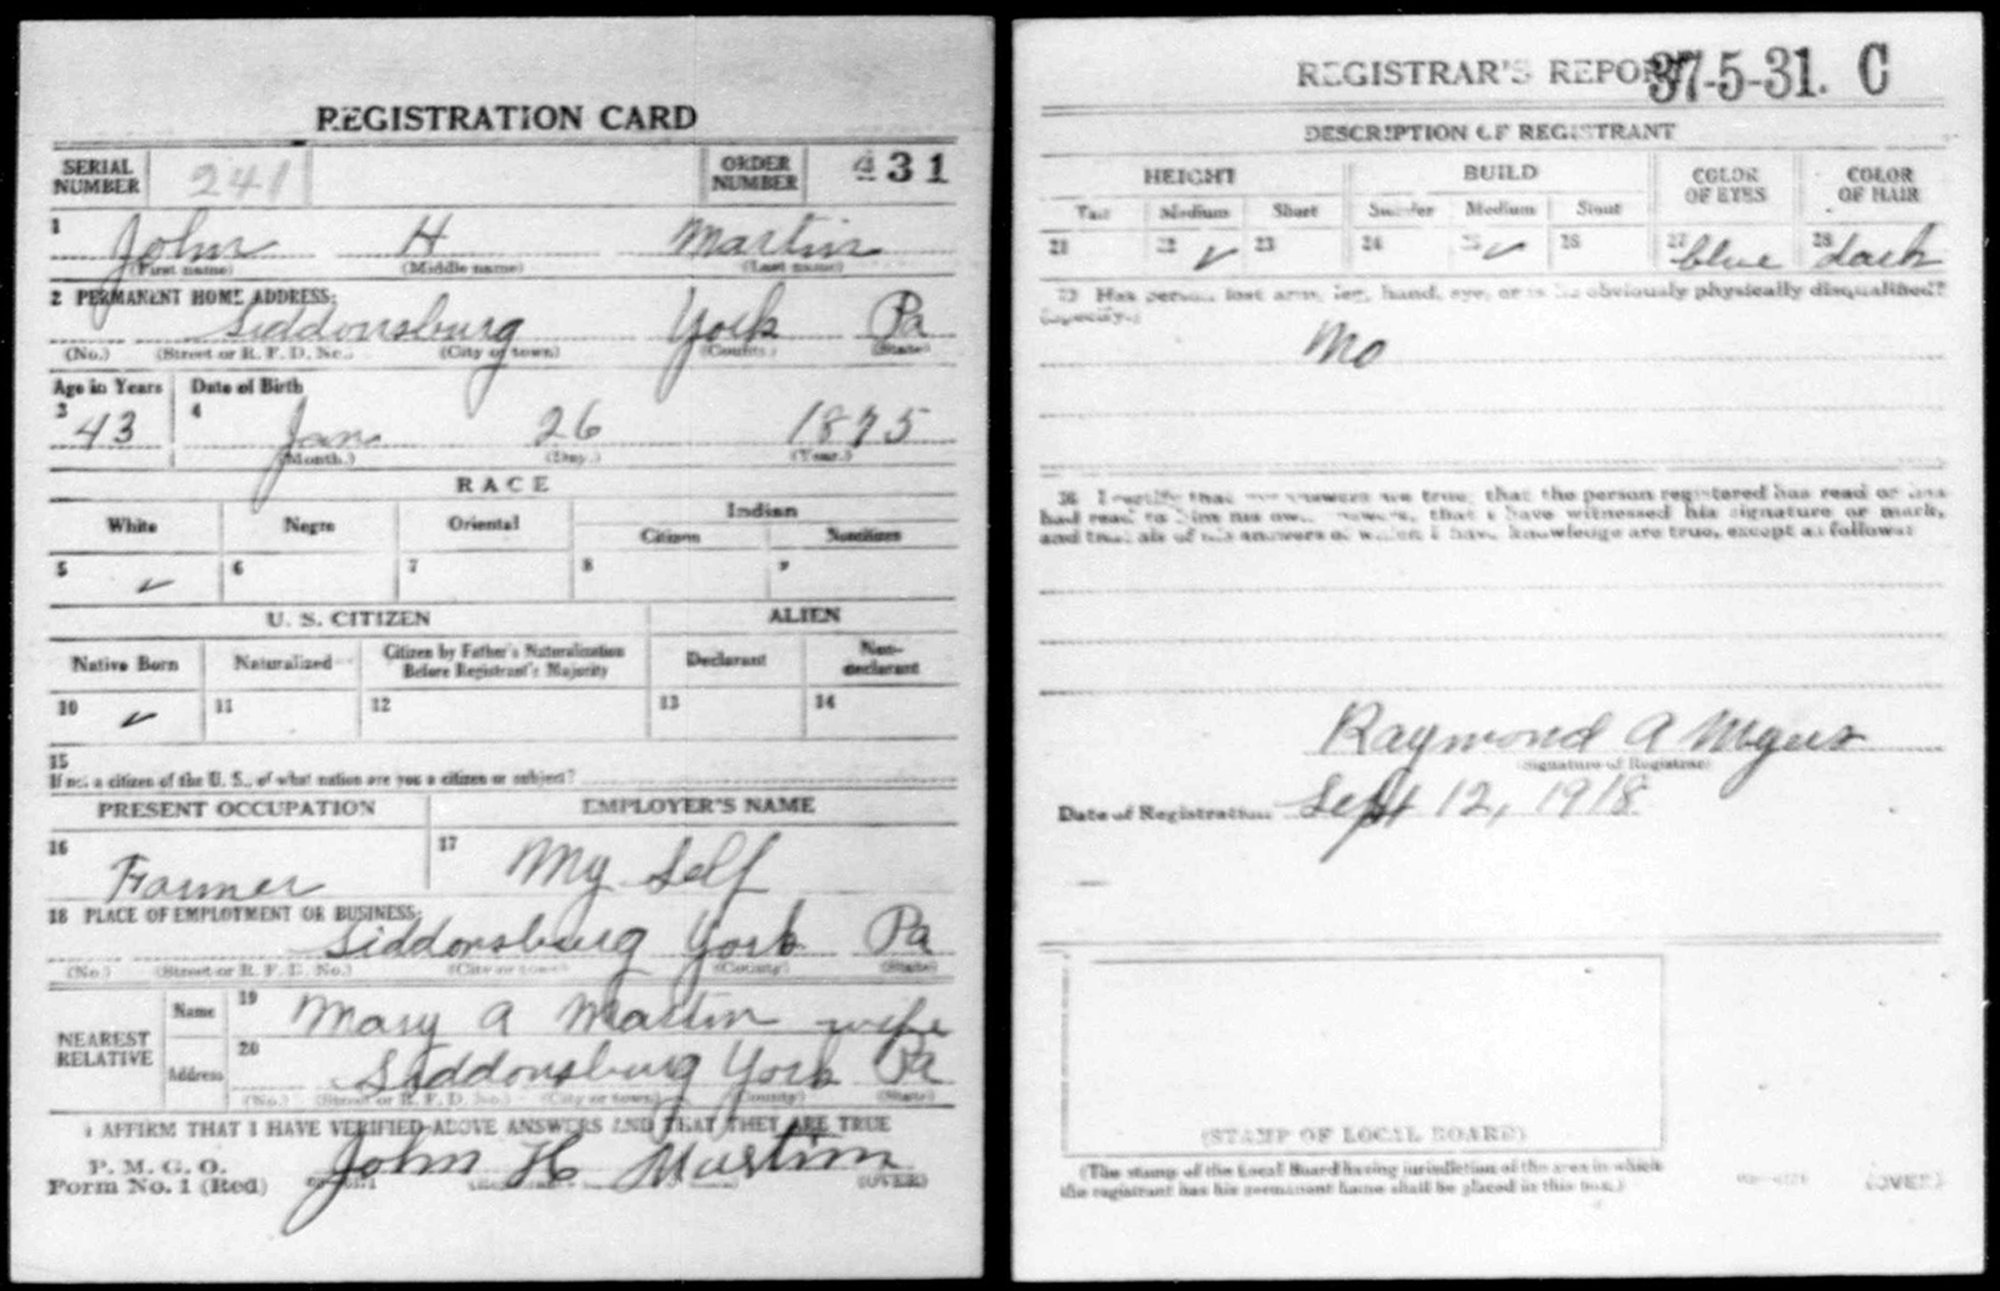 REGISTRATION CARD
SERIAL NUMBER 241 ORDER NUMBER 431
1 John H Martin
(First name) (Middle name) (Last name)
2 PERMANENT HOME ADDRESS:
Siddonsburg York Pa
(No.) (Street or R. F. D. No.) (City or town) (County) (State)
Age in Years Date of Birth
3 43 4 Jan 26 1875
(Month.) (Day.) (Year.)
RACE
White Negro Oriental Indian
Citizen Noncitizen
5 ✓ 6 7 8 9
U. S. CITIZEN ALIEN
Native Born Naturalized Citizen by Father's Naturalization Before Registrant's Majority Declarant Non-declarant
10 ✓ 11 12 13 14
15
If not a citizen of the U. S., of what nation are you a citizen or subject?
PRESENT OCCUPATION EMPLOYER'S NAME
16 Farmer 17 My Self
18 PLACE OF EMPLOYMENT OR BUSINESS:
Siddonsburg York Pa
(No.) (Street or R. F. D. No.) (City or town) (County) (State)
NEAREST RELATIVE
Name 19 Mary A Martin wife
Address 20 Siddonsburg York Pa
(No.) (Street or R. F. D. No.) (City or town) (County) (State)
I AFFIRM THAT I HAVE VERIFIED ABOVE ANSWERS AND THAT THEY ARE TRUE
P. M. G. O.
Form No. 1 (Red) John H Martin (OVER)
REGISTRAR'S REPORT 37-5-31. C
DESCRIPTION OF REGISTRANT
HEIGHT BUILD COLOR OF EYES COLOR OF HAIR
Tall Medium Short Slender Medium Stout
21 22 ✓ 23 24 25 ✓ 26 27 blue 28 dark
29 Has person lost arm, leg, hand, eye, or is he obviously physically disqualified?
(Specify.)
No
30 I certify that my answers are true; that the person registered has read or has
had read to him his own answers; that I have witnessed his signature or mark,
and that all of his answers of which I have knowledge are true, except as follows:
Raymond A Myers
(Signature of Registrar)
Date of Registration Sept 12, 1918
(STAMP OF LOCAL BOARD)
(The stamp of the Local Board having jurisdiction of the area in which
the registrant has his permanent home shall be placed in this box.)
(OVER)